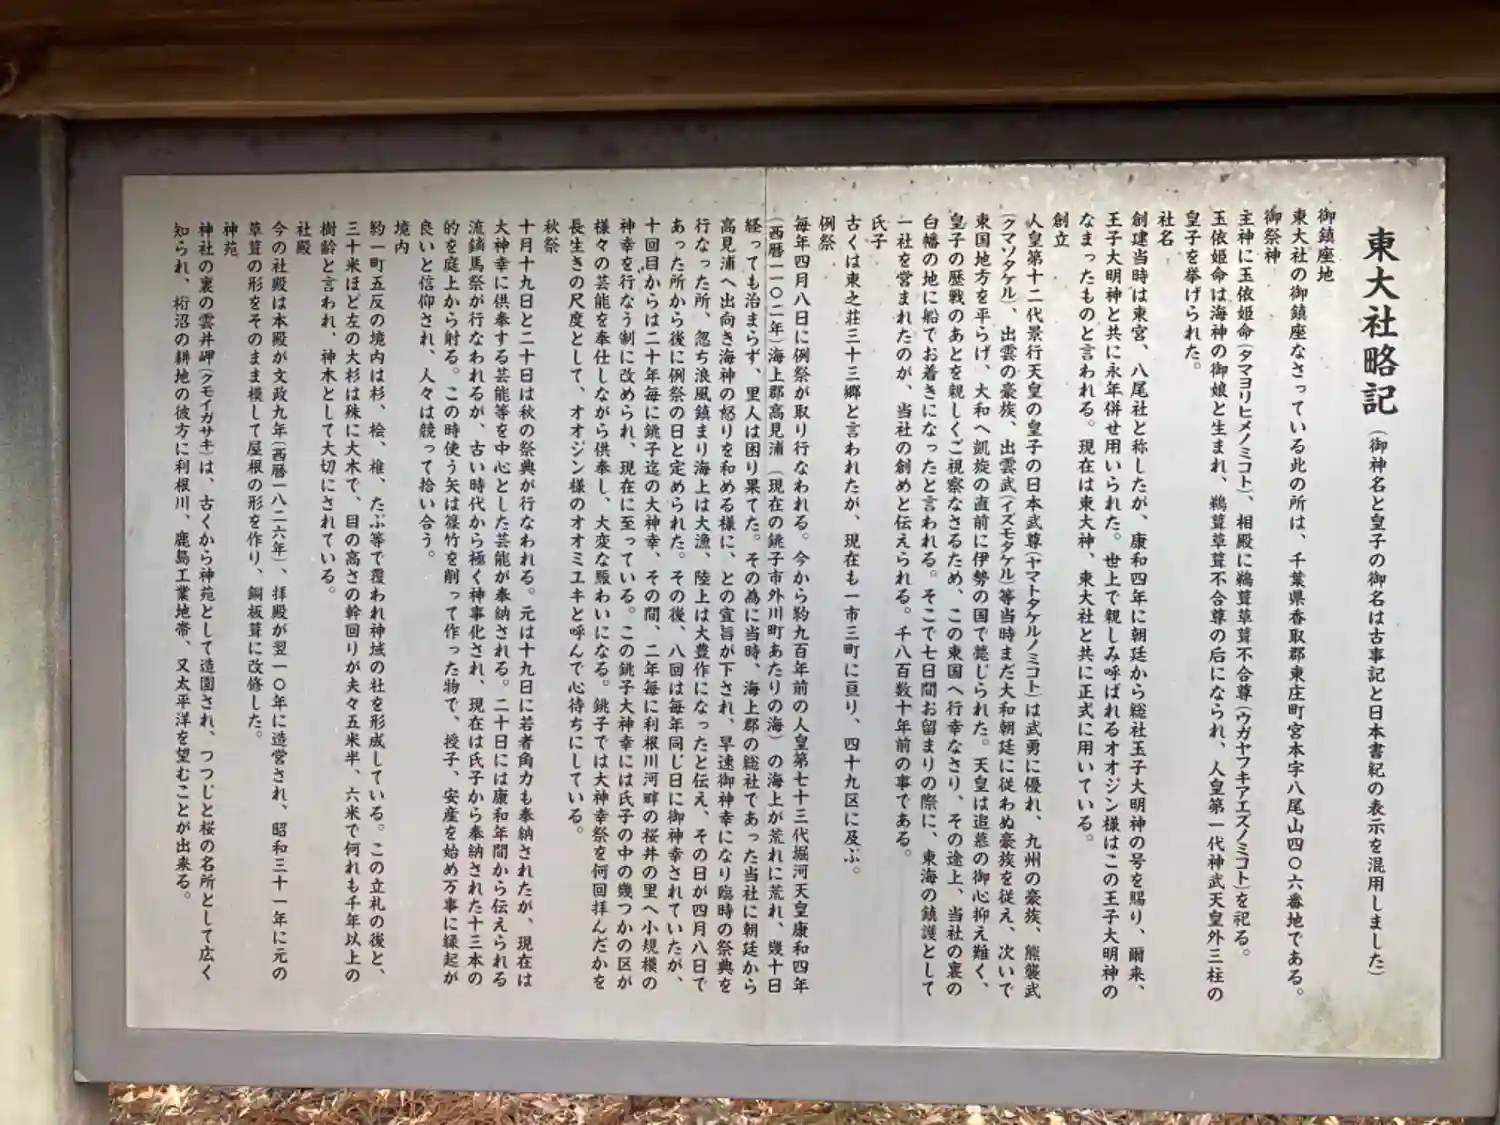 東大社略記(御神名と皇子の御名は古事記と日本書紀の表示を混用しました)
御鎮座地
東大社の御鎮座なさっている此の所は、千葉県香取郡東庄町宮本字八尾山四〇六番地である。
御祭神
主神に玉依姫命(タマヨリヒメノミコト)、相殿に鵜葺草葺不合尊(ウガヤフキアエズノミコト)を祀る。
玉依姫命は海神の御娘と生まれ、鵜葺草葺不合尊の后になられ、人皇第一代神武天皇外三柱の
皇子を挙げられた。
社名
創建当時は東宮、八尾社と称したが、康和四年に朝廷から総社玉子大明神の号を賜り、爾来、
王子大明神と共に永年併せ用いられた。世上で親しみ呼ばれるオオジン様はこの王子大明神の
なまったものと言われる。現在は東大神、東大社と共に正式に用いている。
創立
人皇第十二代景行天皇の皇子の日本武尊(ヤマトタケルノミコト)は武勇に優れ、九州の豪族、熊襲武
(クマソタケル)、出雲の豪族、出雲武(イズモタケル)等当時まだ大和朝廷に従わぬ豪族を従え、次いで
東国地方を平らげ、大和へ凱旋の直前に伊勢の国で薨じられた。天皇は追慕の御心抑え難く、
皇子の歴戦のあとを親しくご視察なさるため、この東国へ行幸なさり、その途上、当社の裏の
白幡の地に船でお着きになったと言われる。そこで七日間お留まりの際に、東海の鎮護として
一社を営まれたのが、当社の創めと伝えられる。千八百数十年前の事である。
氏子
古くは東之荘三十三郷と言われたが、現在も一市三町に亘り、四十九区に及ぶ。
例祭
毎年四月八日に例祭が取り行なわれる。今から約九百年前の人皇第七十三代堀河天皇康和四年
(西暦一一〇二年)海上郡高見浦(現在の銚子市外川町あたりの海)の海上が荒れに荒れ、幾十日
経っても治まらず、里人は困り果てた。その為に当時、海上郡の総社であった当社に朝廷から
高見浦へ出向き海神の怒りを和める様に、との宣旨が下され、早速御神幸になり臨時の祭典を
行なった所、忽ち浪風鎮まり海上は大漁、陸上は大豊作になったと伝え、その日が四月八日で
あった所から後に例祭の日と定められた。その後、八回は毎年同じ日に御神幸されていたが、
十回目からは二十年毎に銚子迄の大神幸、その間、二年毎に利根川河畔の桜井の里へ小規模の
神幸を行なう制に改められ、現在に至っている。この銚子大神幸には氏子の中の幾つかの区が
様々の芸能を奉仕しながら供奉し、大変な賑わいになる。銚子では大神幸祭を何回拝んだかを
長生きの尺度として、オオジン様のオオミユキと呼んで心待ちにしている。
秋祭
十月十九日と二十日は秋の祭典が行なわれる。元は十九日に若者角力も奉納されたが、現在は
大神幸に供奉する芸能等を中心とした芸能が奉納される。二十日には康和年間から伝えられる
流鏑馬祭が行なわれるが、古い時代から極く神事化され、現在は氏子から奉納された十三本の
的を庭上から射る。この時使う矢は篠竹を削って作った物で、授子、安産を始め万事に縁起が
良いと信仰され、人々は競って拾い合う。
境内
約一町五反の境内は杉、桧、椎、たぶ等で覆われ神域の社を形成している。この立札の後と、
三十米ほど左の大杉は殊に大木で、目の高さの幹回りが夫々五米半、六米で何れも千年以上の
樹齢と言われ、神木として大切にされている。
社殿
今の社殿は本殿が文政九年(西暦一八二六年)、拝殿が翌一〇年に造営され、昭和三十一年に元の
草葺の形をそのまま模して屋根の形を作り、銅板葺に改修した。
神苑
神社の裏の雲井岬(クモイガサキ)は、古くから神苑として造園され、つつじと桜の名所として広く
知られ、桁沼の耕地の彼方に利根川、鹿島工業地帯、又太平洋を望むことが出来る。